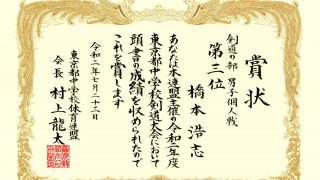 賞状
剣道の部 男子個人戦
第三位
橋本 浩志
あなたは本連盟主催の令和二年度
東京都中学校剣道大会において
頭書の成績を収められたので
これを賞します
令和二年七月二十三日
東京都中学校体育連盟
会長 村上龍太